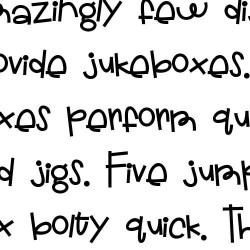 mazingly few dis
ovide jukeboxes.
xes perform qu
d jigs. Five jump
x bolty quick. Th